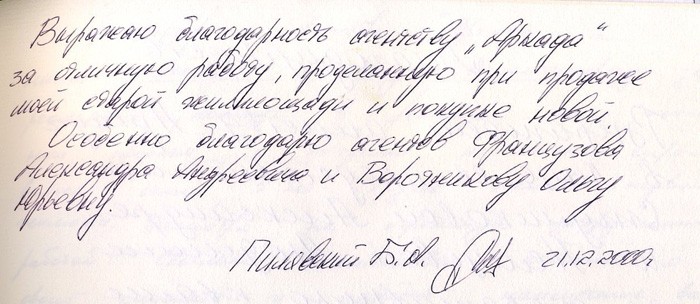 Выражаю благодарность агентству „Аркада“
за отличную работу, проделанную при продаже
моей старой жилплощади и покупке новой.
Особенно благодарю агентов Французова
Александра Андреевича и Ворожейкову Ольгу
Юрьевну.
Б.А. 21.12.2000г.